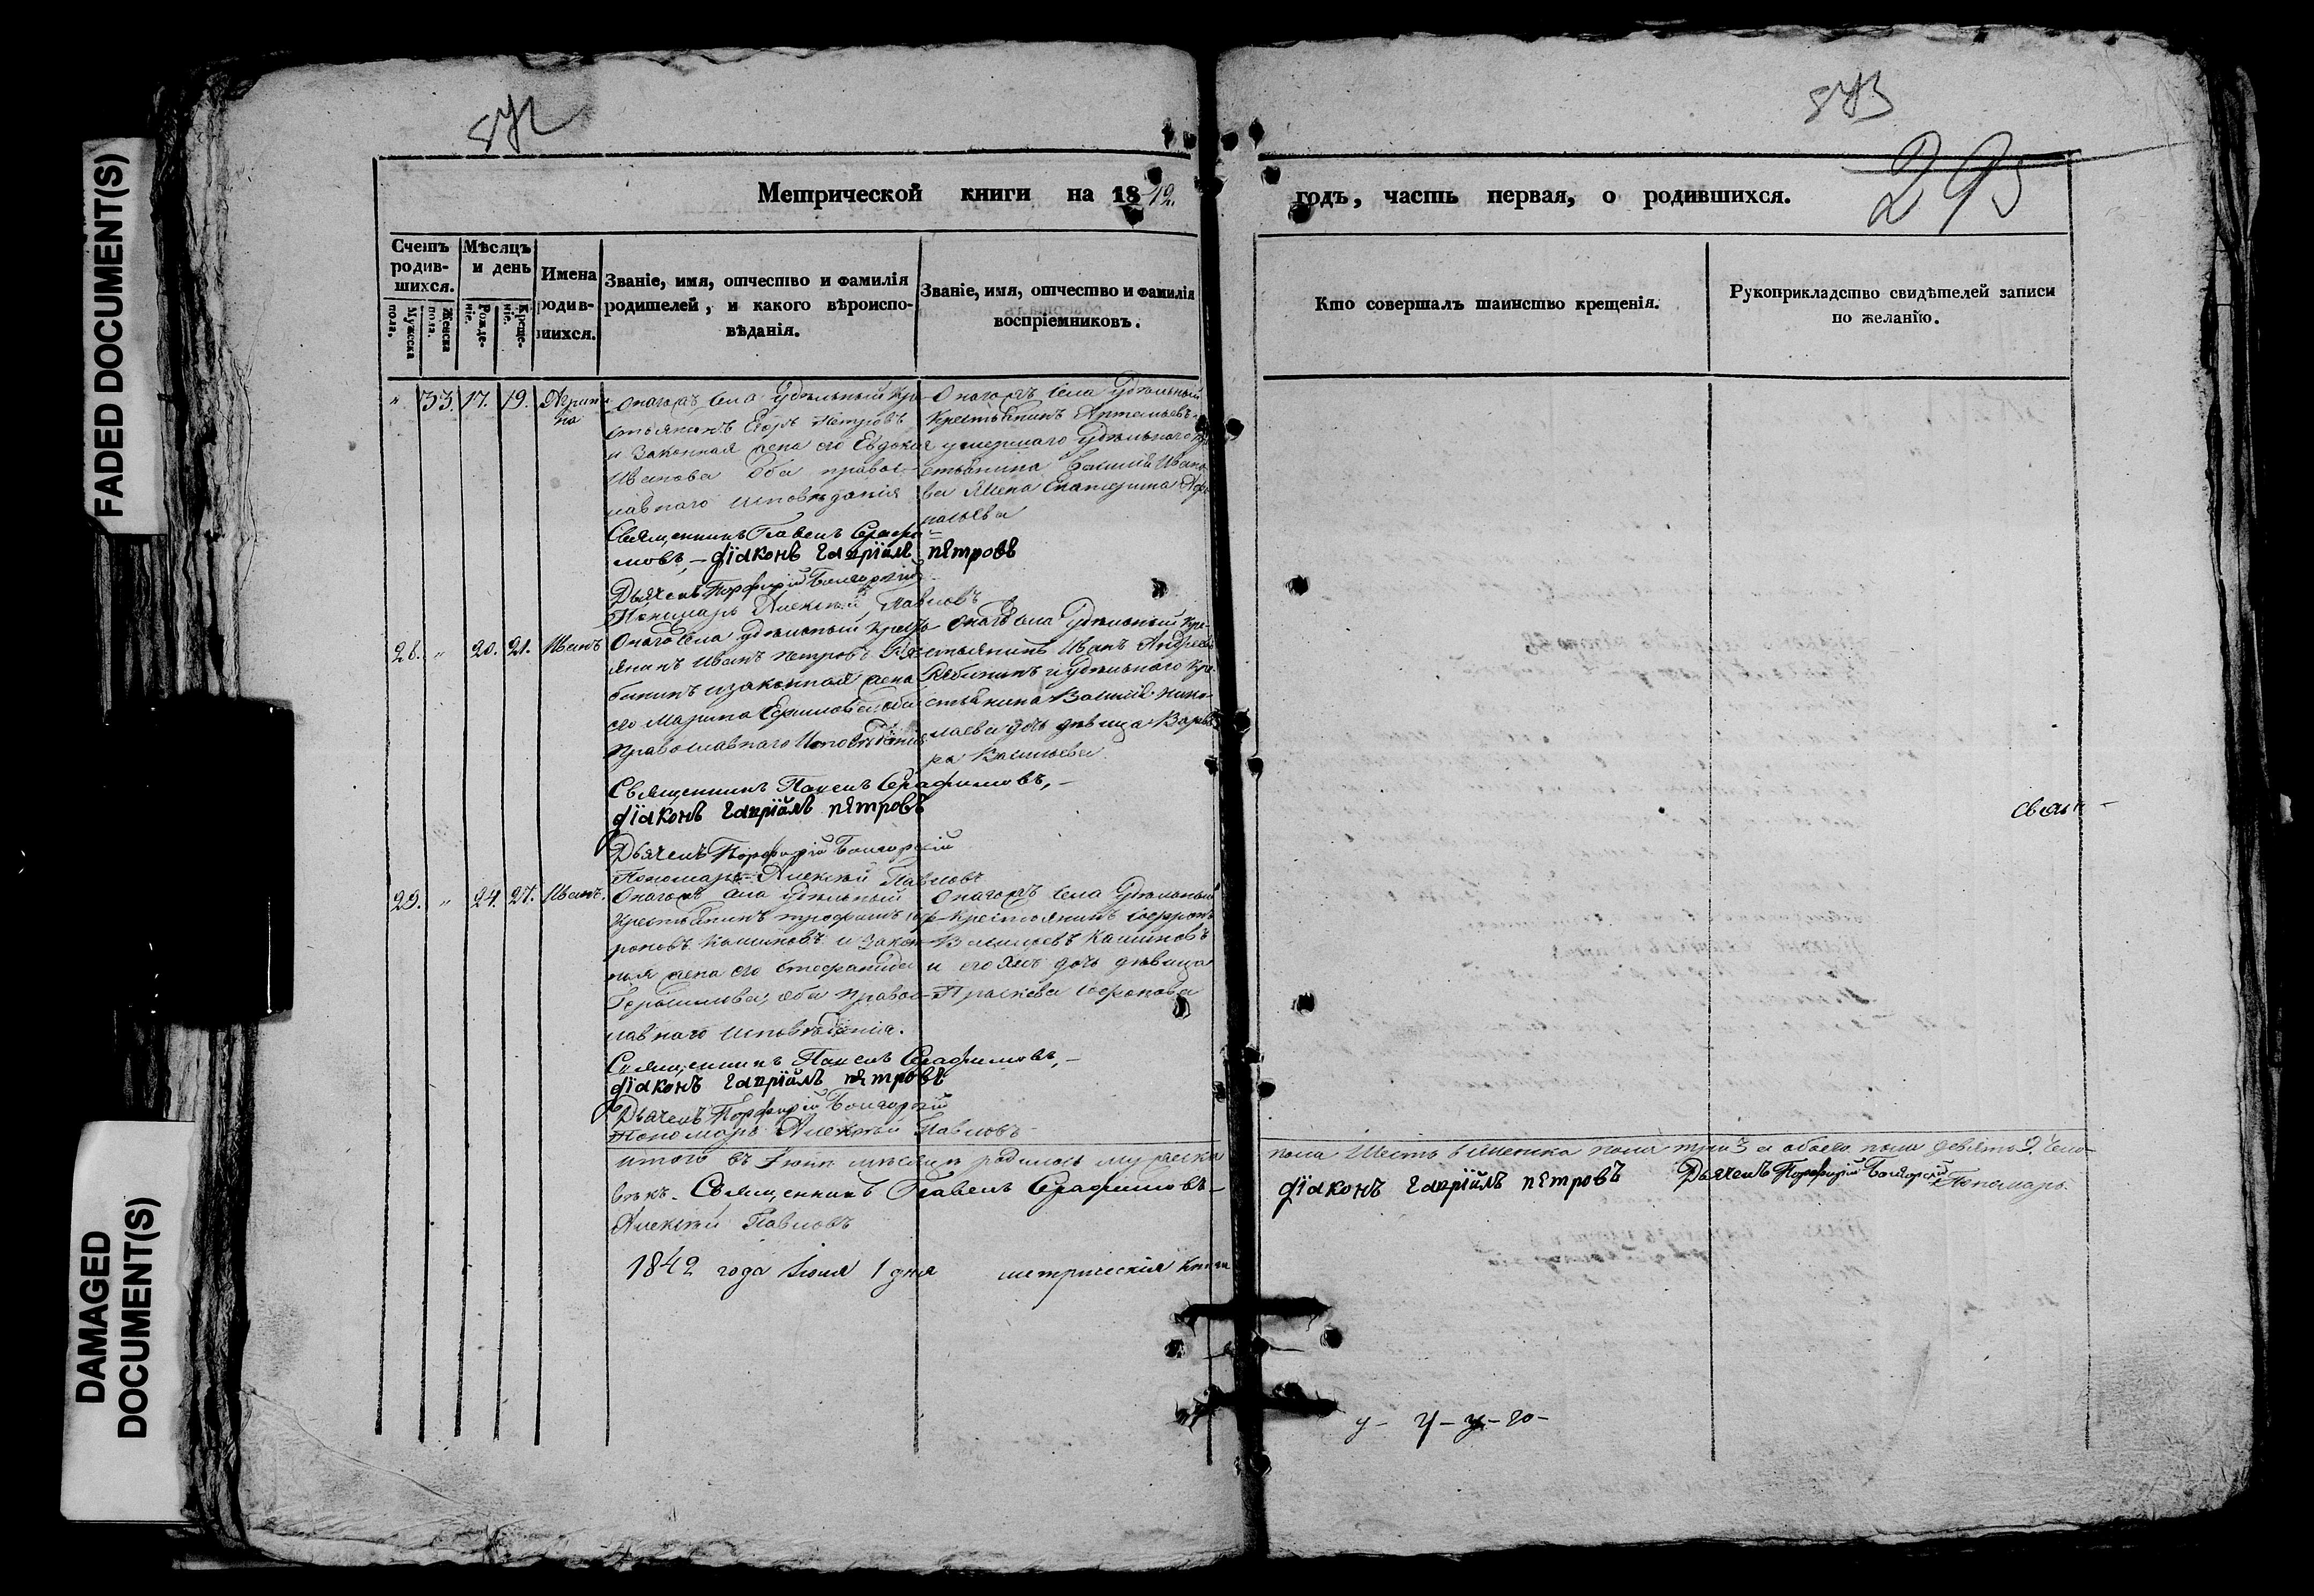 FADED DOCUMENT(S)
DAMAGED DOCUMENT(S)
872
873
293
Метрической книги на 1842.
годъ, часть первая, о родившихся.
Счетъ родив-
шихся.
Мужеска пола.
Женска пола.
Мѣсяцъ
и день
Рожде-
ніе.
Креще-
ніе.
Имена
родив-
шихся.
Званіе, имя, отчество и фамилія
родителей, и какого вѣроиспо-
вѣданія.
Званіе, имя, отчество и фамилія
воспріемниковъ.
Кто совершалъ таинство крещенія.
Рукоприкладство свидѣтелей записи
по желанію.
" 33. 17. 19. Агрипи
на
Онагожъ села удѣльный кре-
стьянинъ Егоръ Петровъ
и законная жена его Евдокія
Иванова оба правос-
лавнаго исповѣданія
Онагожъ села удѣльный
крестьянинъ Артемьевъ
умершаго удѣльнаго кре
стьянина Василія Ивано
ва жена Екатерина
Священникъ Павелъ Серафи
мовъ, – діаконъ гавріилъ пЕтровъ
Дьячекъ Порфирій Болгорскій
Пономарь Алексѣй Павловъ
28. " 20. 21. Иванъ
Онаго села удѣльный кресть
янинъ Иванъ Петровъ Ря
бининъ и законная жена
его Марина Ефимова оба
православнаго исповѣданія
Онаго села удѣльный кре-
стьянинъ Иванъ Андреевъ
Рябининъ и удѣльнаго кре
стьянина Василія Нико-
лаева дочь дѣвица Варва
ра Васильева
Священникъ Павелъ Серафимовъ, –
діаконъ гавріилъ пЕтровъ
Дьячекъ Порфирій Болгорскій
Пономарь Алексѣй Павловъ
29. " 24. 27. Иванъ.
Онагожъ села удѣльный
крестьянинъ Трофимъ Соф-
роновъ Кашиновъ и закон-
ная жена его Стефанида
Герасимова, оба правос-
лавнаго исповѣданія.
Онагожъ села удѣльный
крестьянинъ Софронъ
Васильевъ Кашиновъ
и его же дочь дѣвица
Праскева Софронова
Священникъ Павелъ Серафимовъ, –
діаконъ гавріилъ пЕтровъ
Дьячекъ Порфирій Болгорскій
Пономарь Алексѣй Павловъ
итого въ Іюнѣ мѣсяцѣ родилось мужеска
пола шесть 6 женска пола три 3 а обоего пола девять 9. чело-
вѣкъ. Священникъ Павелъ Серафимовъ –
діаконъ гавріилъ пЕтровъ Дьячекъ Порфирій Болгорскій Пономарь
Алексѣй Павловъ
1842 года Іюля 1 дня метрическія книги